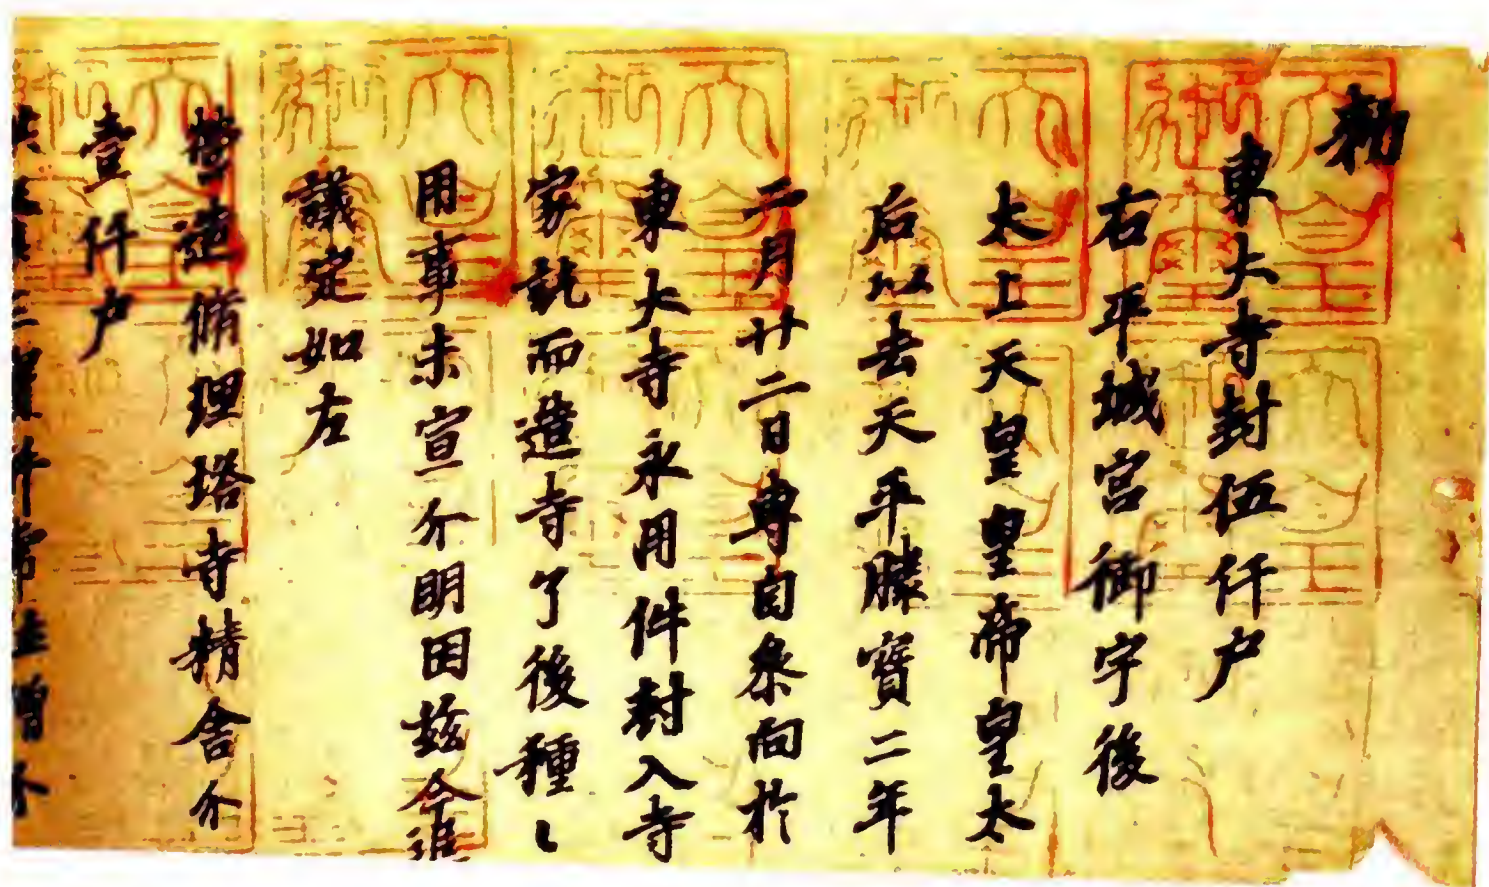 勅
東大寺封伍仟戸
右平城宮御宇後
太上天皇皇帝皇太
后以去天平勝寶二年
二月廿二日專自參向於
東大寺永用件封入寺
家訖而造寺了後種々
用事未宣分明因茲今追
議定如左
營造脩理塔寺精舍分
壹仟戸
供養三寶并常住僧分
天皇御璽